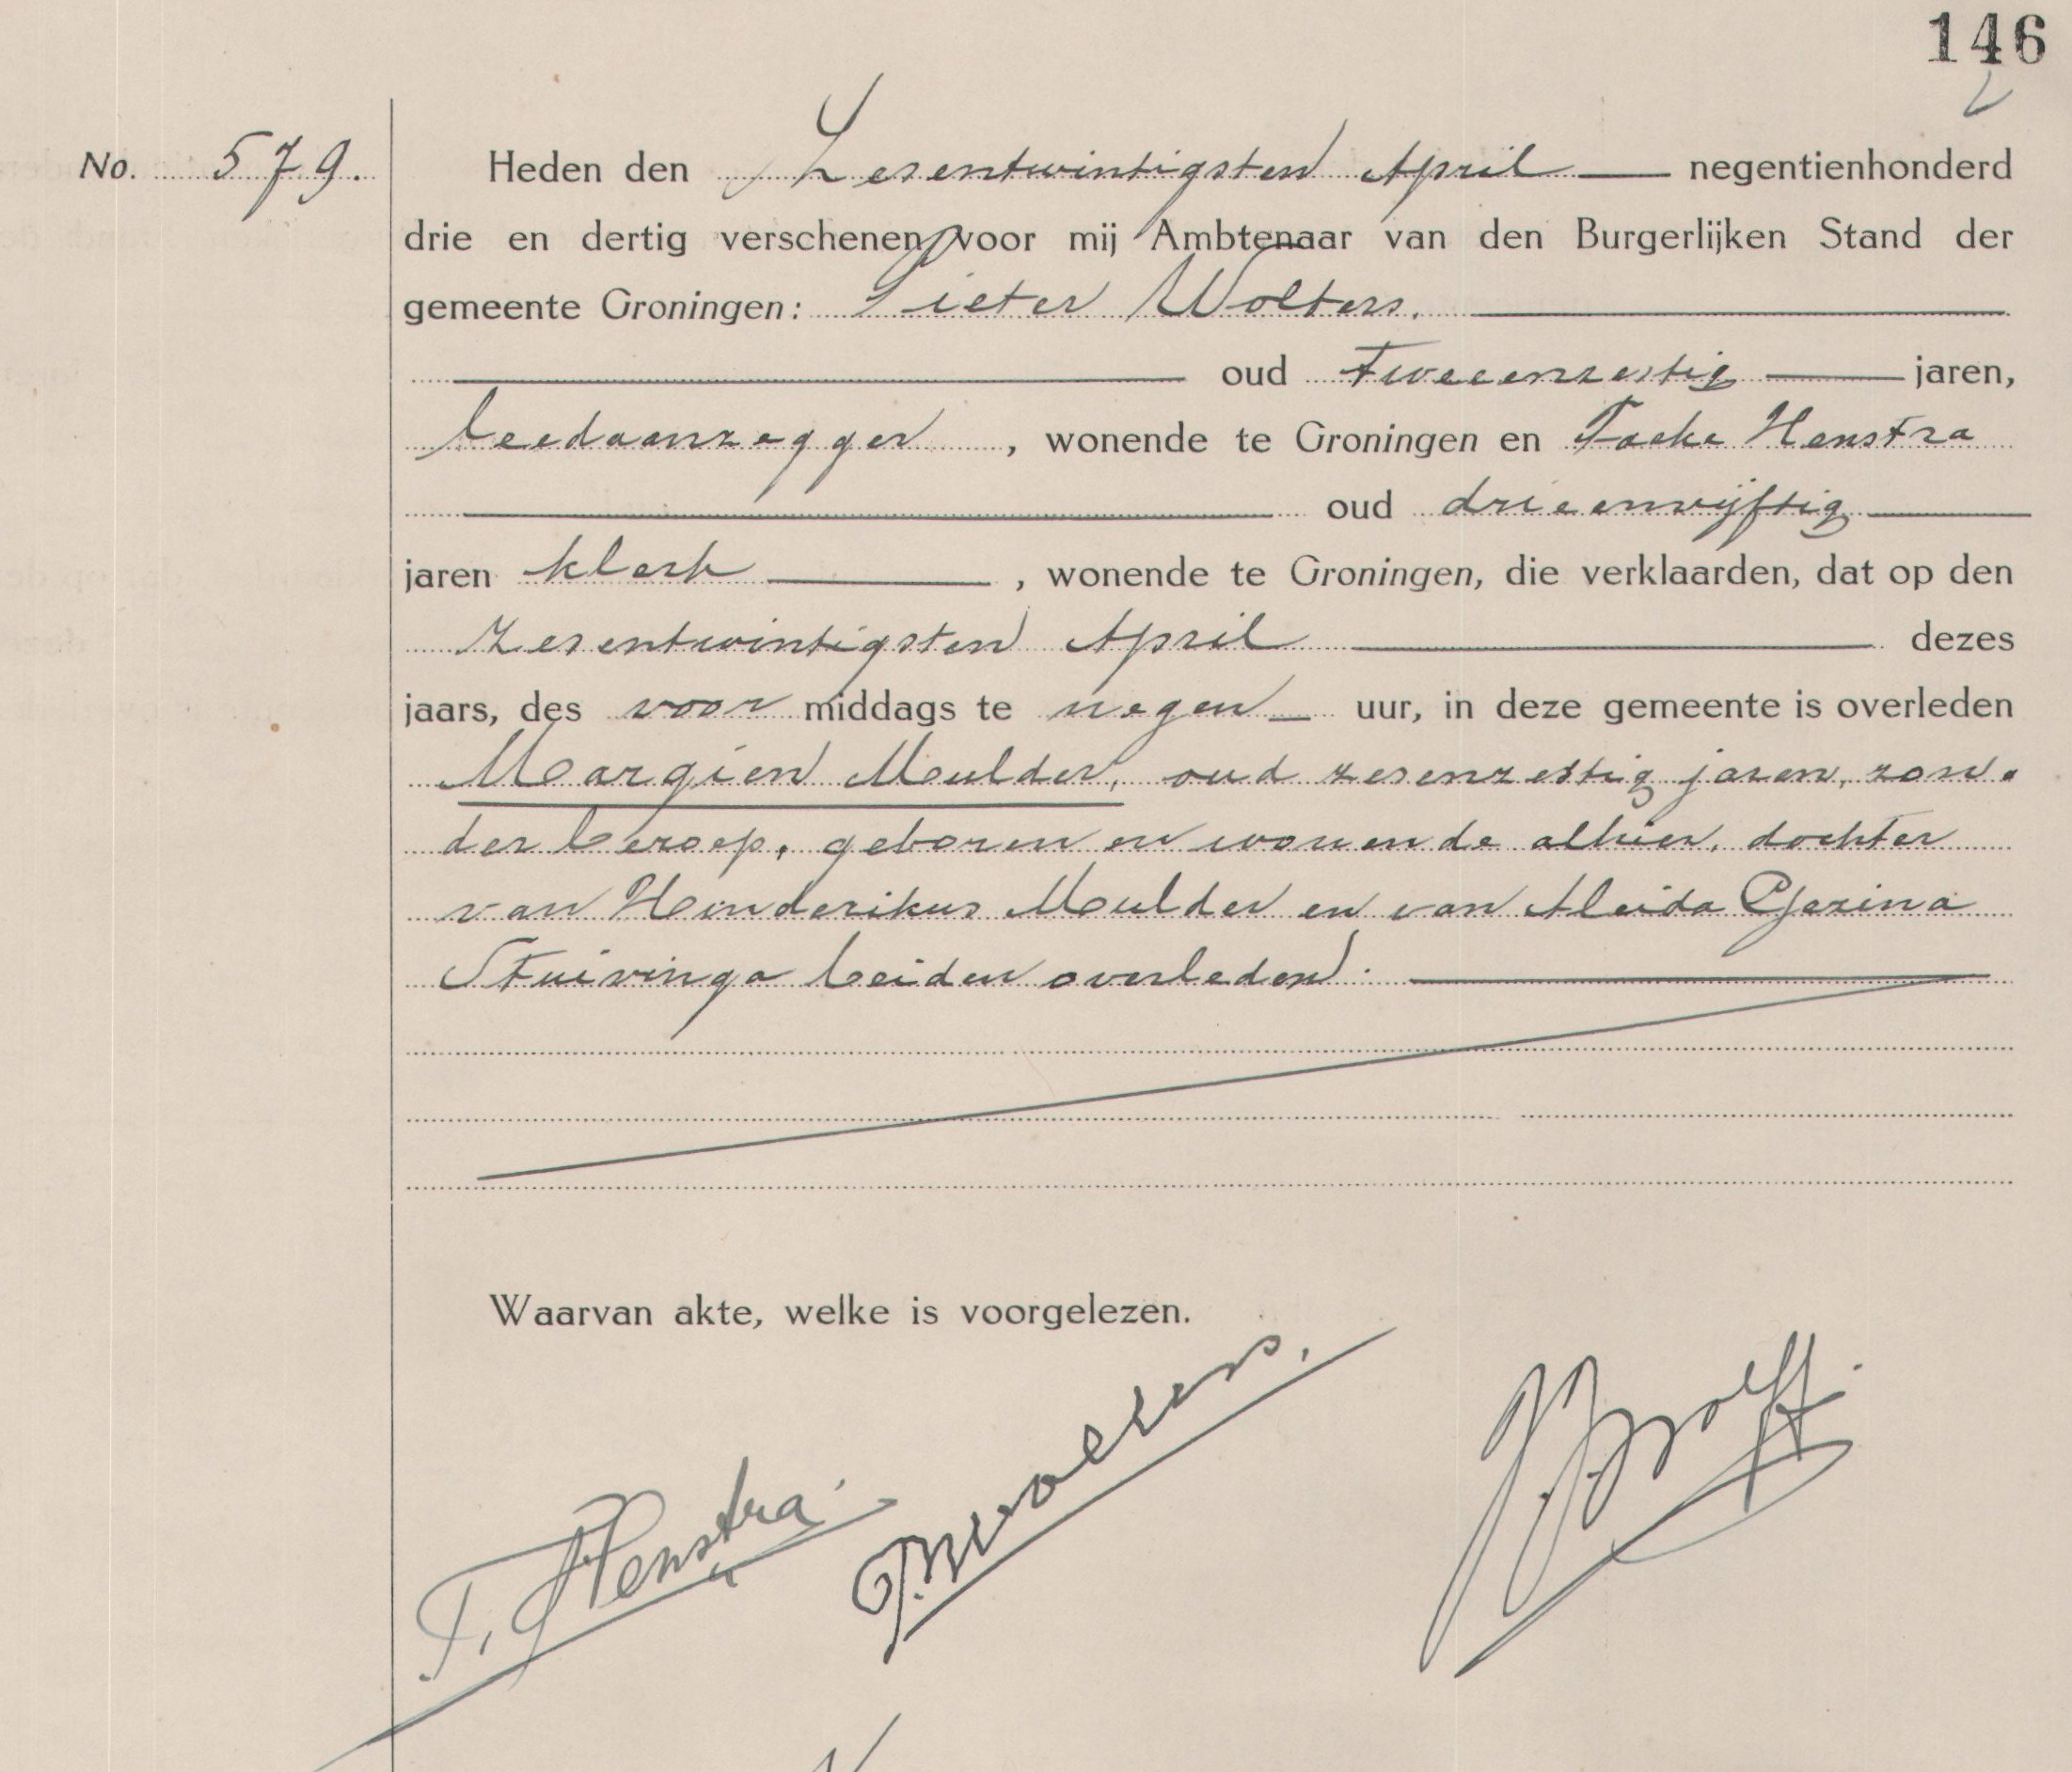 146
No. 579. Heden den Zesentwintigsten April negentienhonderd
drie en dertig verschenen voor mij Ambtenaar van den Burgerlijken Stand der
gemeente Groningen: Pieter Wolters.
oud tweeenzestig jaren,
leedaanzegger, wonende te Groningen en Focke Henstra
oud drieenvijftig
jaren klerk, wonende te Groningen, die verklaarden, dat op den
zesentwintigsten April dezes
jaars, des voor middags te negen uur, in deze gemeente is overleden
Margien Mulder, oud zesenzestig jaren, zon-
der beroep, geboren en wonende alhier, dochter
van Hinderikus Mulder en van Aleida Gezina
Stuivinga beiden overleden.
Waarvan akte, welke is voorgelezen.
P. Wolters.
F. Henstra